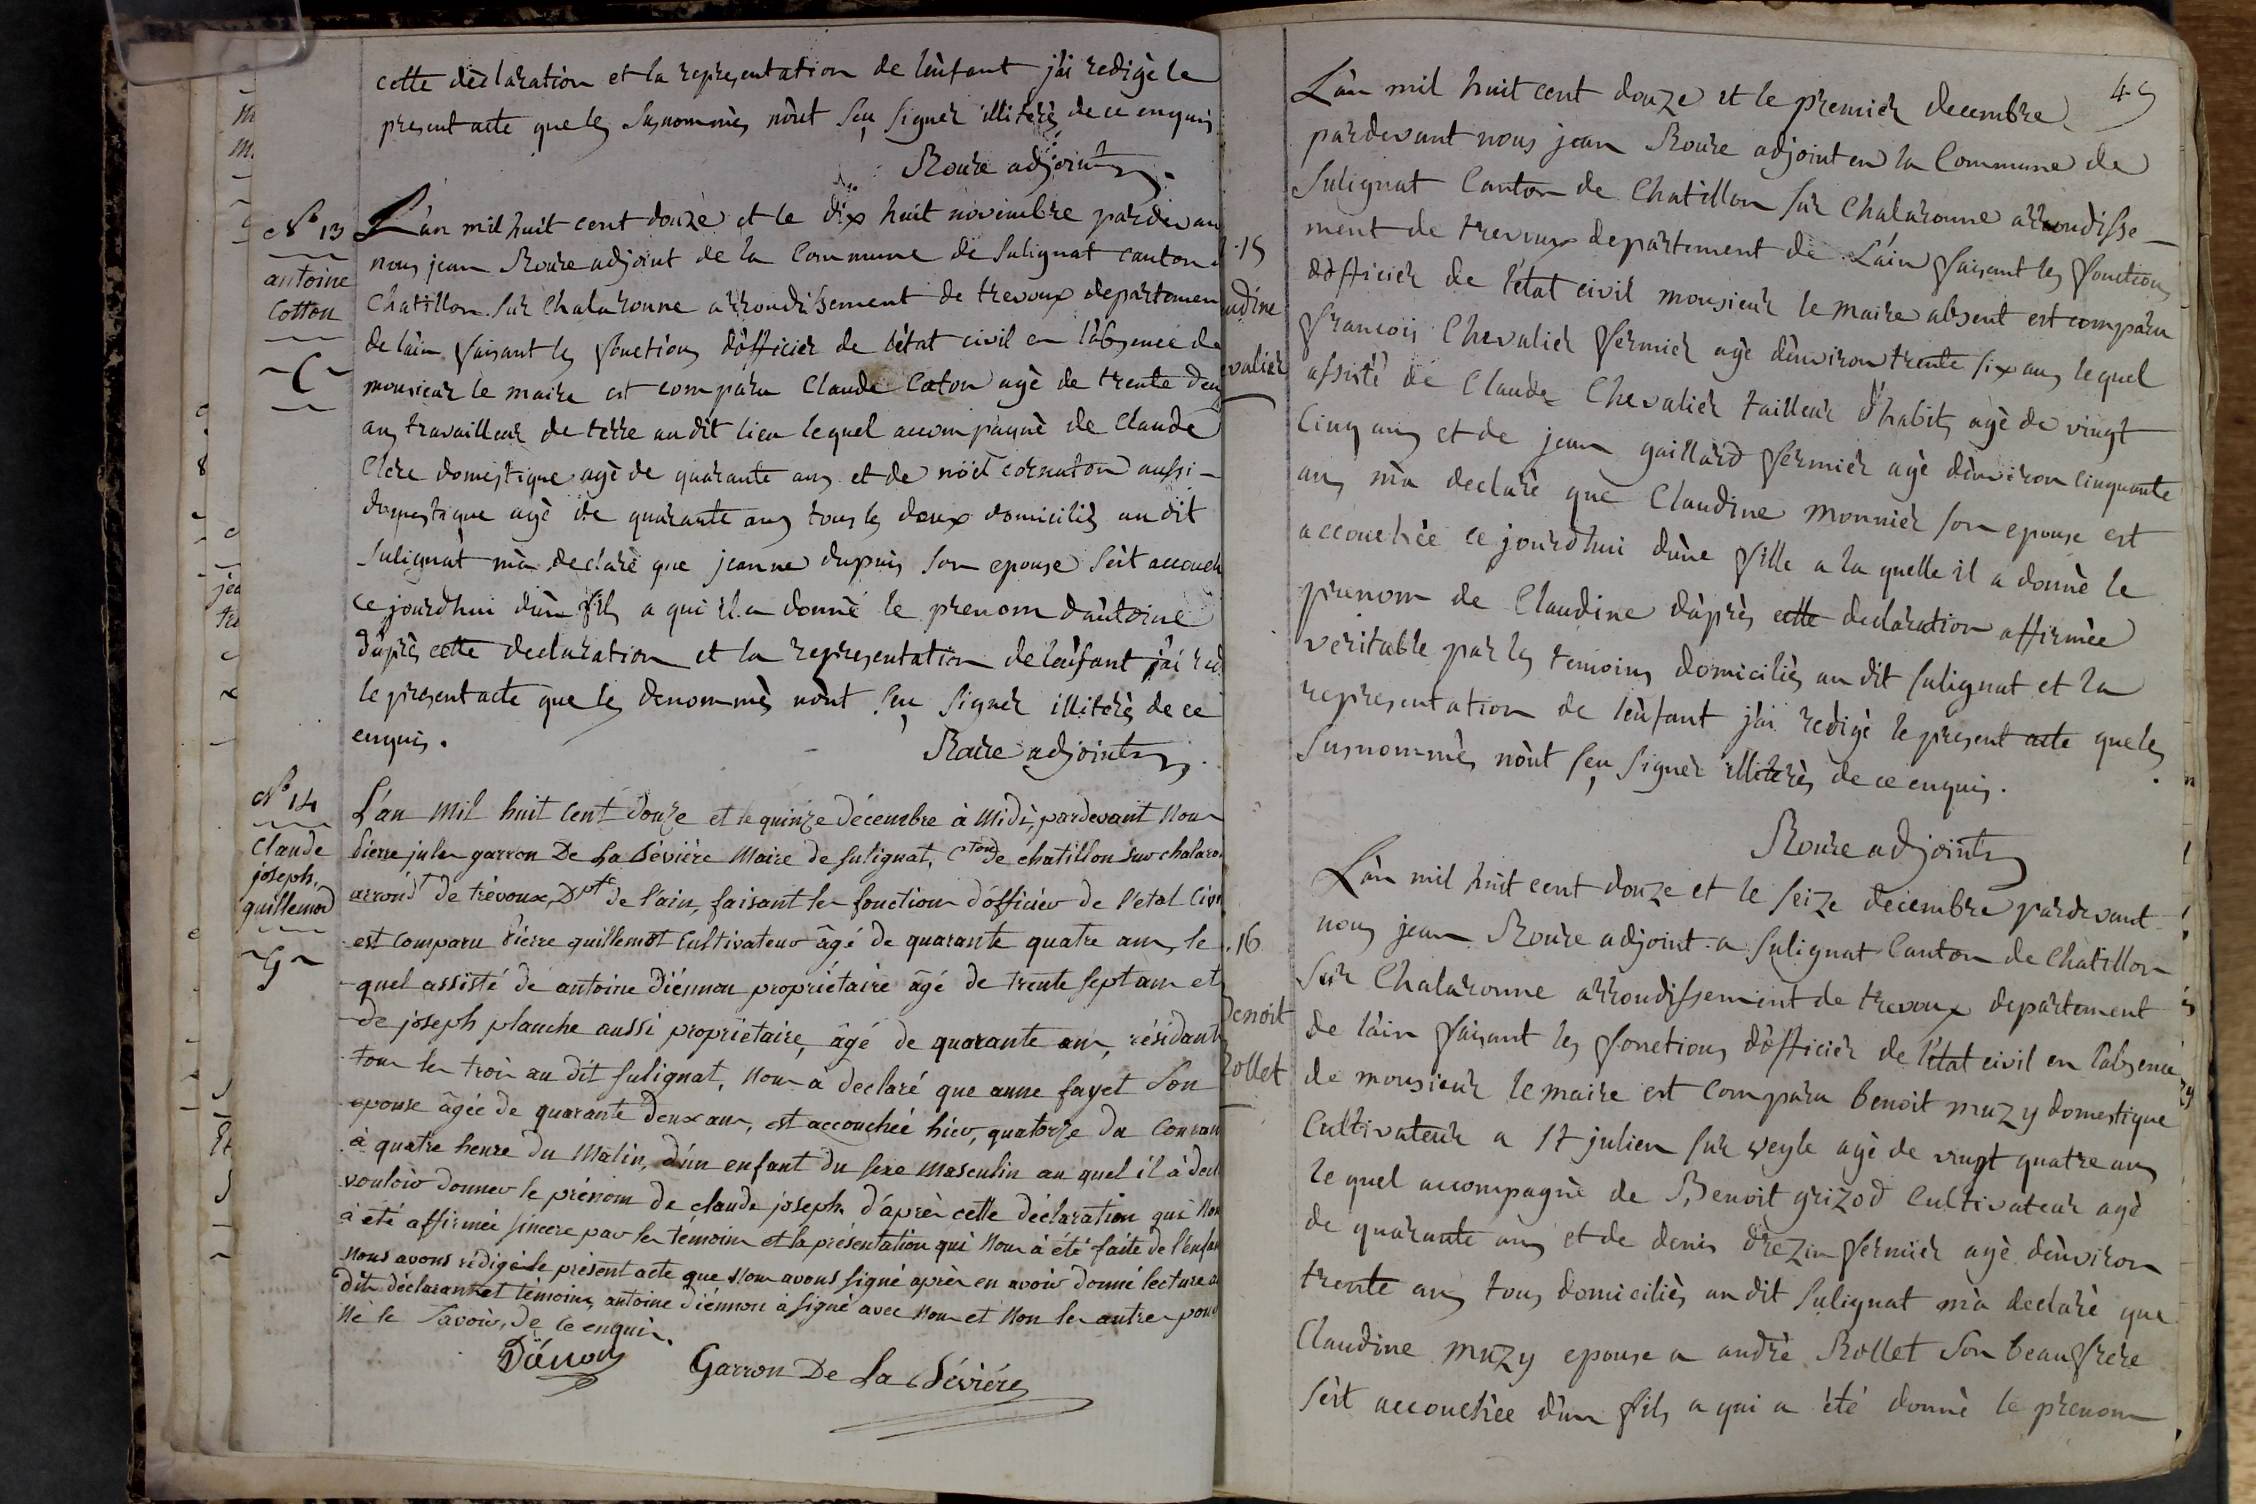 cette dèclaration et la representation de lènfant j'ai redigè le
present acte que les susnommès nònt seu signer illiterès de ce enquis
Roure adjoint
N° 13
antoine
Cotton
C
L'àn mil huit cent douze et le dix huit novembre pardevan
nous jean Roure adjoint de la Commune de Sulignat canton
Chatillon sur Chalaronne arrondissement de trevoux departemen
de làin faisant les fonctions dòfficier de létat civil en làbsence de
monsieur le maire est comparu Claude Coton agè de trente deux
ans travailleur de terre au dit lieu lequel accompagnè de Claude
Clere domestique agè de quarante ans et de noël cornaton aussi
domestique agè de quarante ans tous les deux domiciliès au dit
Sulignat mà declarè que jeanne dupuis son epouse sèst accouch
ce jourdhui dùn fils a qui il a donnè le prenom dàntoine
dàprès cette declaration et la representation de lènfant j'ai red
le present acte que les denommès nònt seu signer illiterès de ce
enquis.
Roure adjoint
N° 14
Claude
joseph
guillemod
G
L'an Mil huit Cent Douze et le quinze décembre à Midi, pardevant Nous
Pierre jules garron De La Bévière Maire de Sulignat, Cton de chatillon sur chalaro
arrondt de trévoux, Dpt de l'ain, faisant les fonctions d'officier de l'etat Civi
est Comparu Pierre guillemot Cultivateur âgé de quarante quatre ans, le
quel assisté de antoine Diénnon propriétaire âgé de trente sept ans et
de joseph planche aussi propriétaire, âgé de quarante ans, résidants
tous les trois au dit Sulignat, Nous à declaré que anne fayet Son
epouse âgée de quarante deux ans, est accouchée hier, quatorze du Couran
à quatre heure du Matin, d'un enfant du sexe Masculin au quel il à decl
vouloir donner le prénom de claude joseph. d'après cette déclaration qui Nou
à été affirmée sincere par les témoins et la présentation qui Nous à été faite de l'enfan
Nous avons rédigé le présent acte que Nous avons signé après en avoir donné lecture a
dits déclarant et témoins, antoine Diénnon à signé avec Nous et Non les autres pour
Ne le Savoir, de ce enquis.
Diénon
Garron De La Bévière
15
udine
valier
45
L'àn mil huit cent douze et le premier decembre
pardevant nous jean Roure adjoint en la Commune de
Sulignat Canton de Chatillon sur Chalaronne arrondisse-
ment de trevoux departement de L'ain faisant les fonctions
dòfficier de l'état civil monsieur le maire absent est comparu
francois Chevalier fermier agè dènviron trente six ans lequel
assisté de Claude Chevalier tailleur d'habits agè de vingt
Cinq ans et de jean gaillard fermier agè dènviron cinquante
ans mà declarè que Claudine monnier son epouse est
accouchèe ce jourdhui dùne fille a la quelle il a donnè le
prenom de Claudine dàprès cette declaration affirmèe
veritable par les temoins domiciliès au dit sulignat et la
representation de lènfant j'ai redigè le present acte que les
susnommès nònt seu signer illiterès de ce enquis.
Roure adjoint
16
Benoit
Rollet
L'àn mil huit cent douze et le seize decembre pardevant
nous jean Roure adjoint a Sulignat Canton de Chatillon
sur Chalaronne arrondissement de trevoux departement
de làin faisant les fonctions dòfficier de l'état civil en làbsence
de monsieur le maire est comparu benoit muzy domestique
Cultivateur a St julien sur veyle agè de vingt quatre ans
le quel accompagnè de Benoit grizod Cultivateur agè
de quarante ans et de denis drezin fermier agè dènviron
trente ans tous domiciliès au dit Sulignat mà declarè que
Claudine muzy epouse a andrè Rollet son beaufrere
sèst accouchèe dùn fils a qui a été donnè le prenom